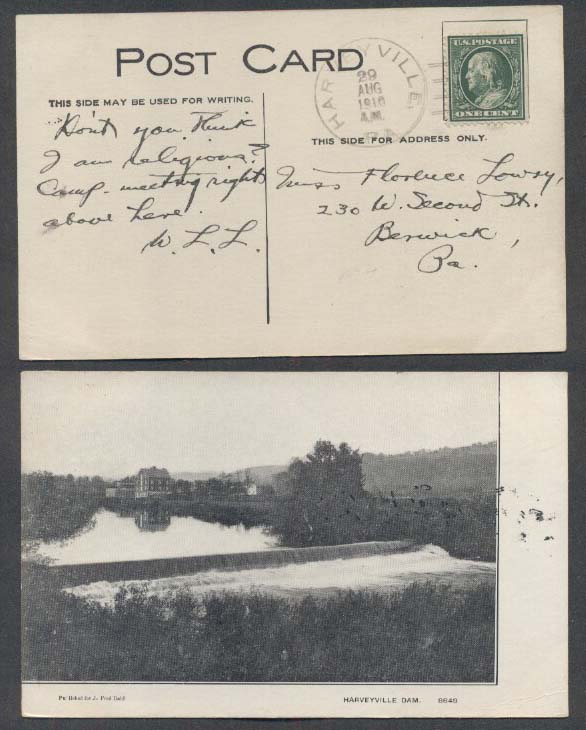 POST CARD
HARVEYVILLE, PA.
29
AUG
1910
A.M.
U.S. POSTAGE
ONE CENT
THIS SIDE MAY BE USED FOR WRITING.
THIS SIDE FOR ADDRESS ONLY.
Don't you think
I am religious?
Camp-meeting right
above here.
W. L. L.
Miss Florence Lowry,
230 W. Second St.
Berwick,
Pa.
Published for J.
HARVEYVILLE DAM. 8649